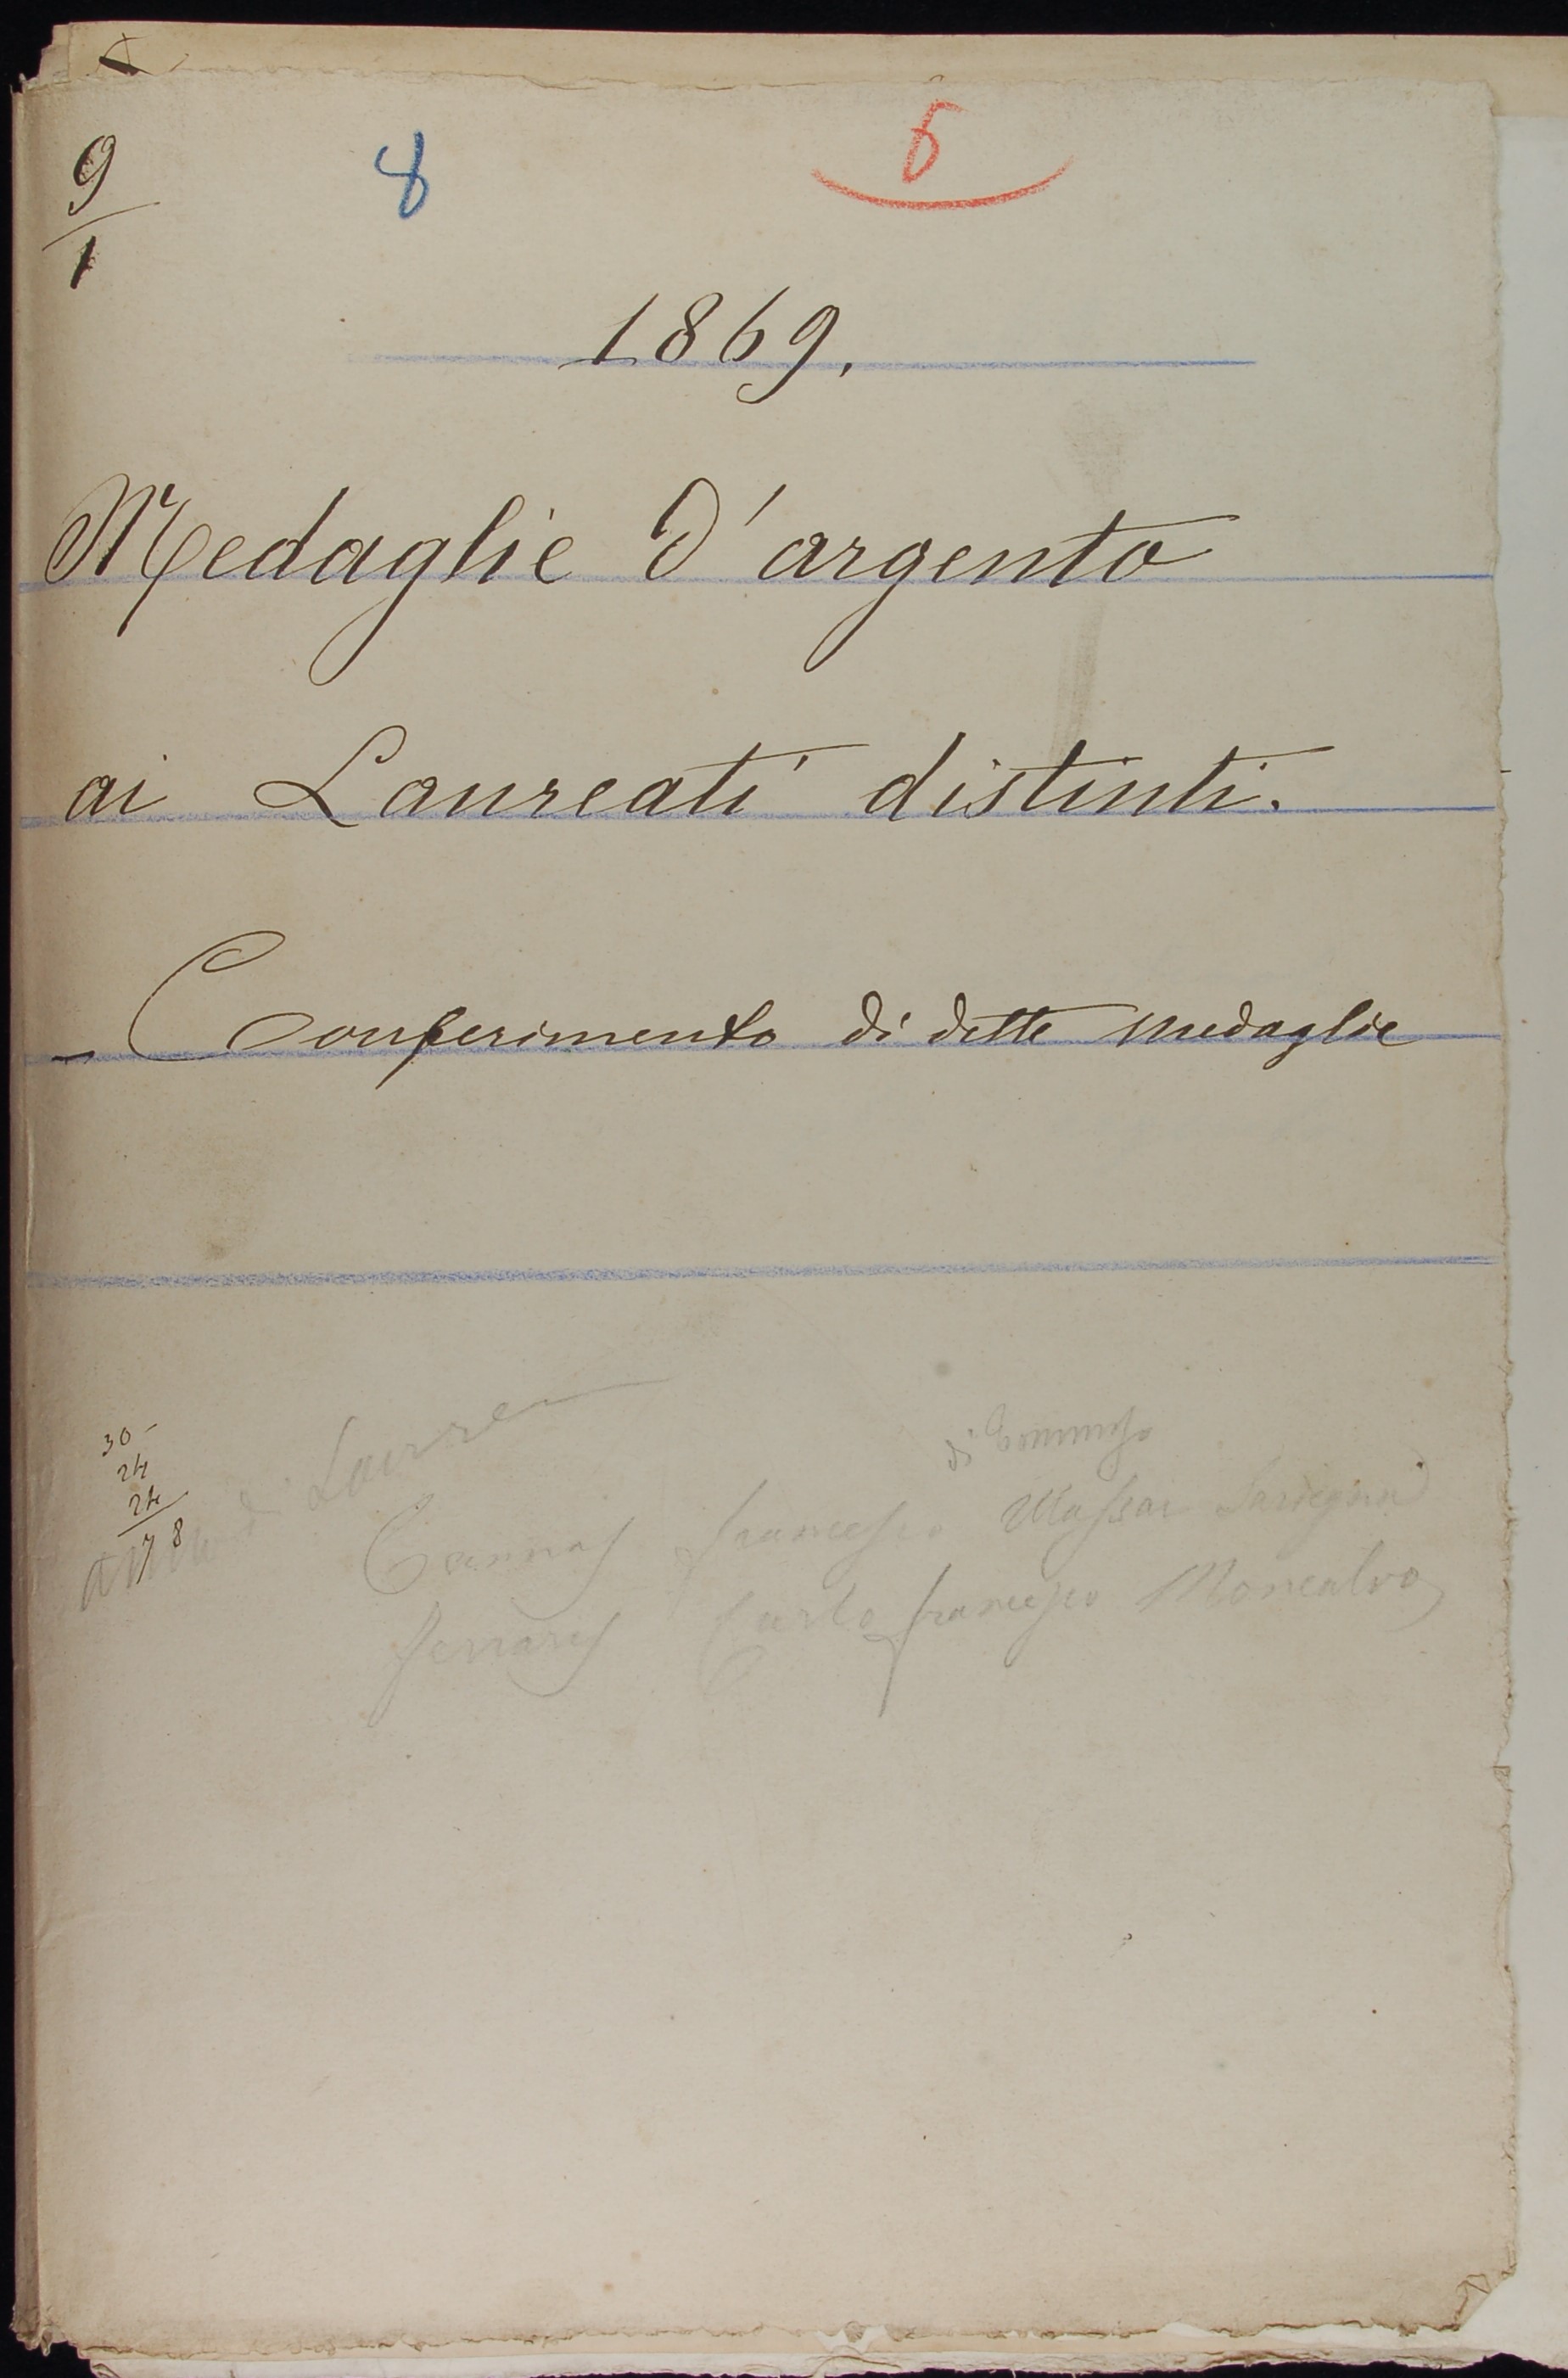 9
1
8
6
1869.
Medaglie d'argento
ai Laureati distinti.
- Conferimento di dette medaglie
30-
24
24
78
di Laurea
di Tommaso
Cannas Francesco Sardegna
Ferraris Carlo Francesco Moncalvo